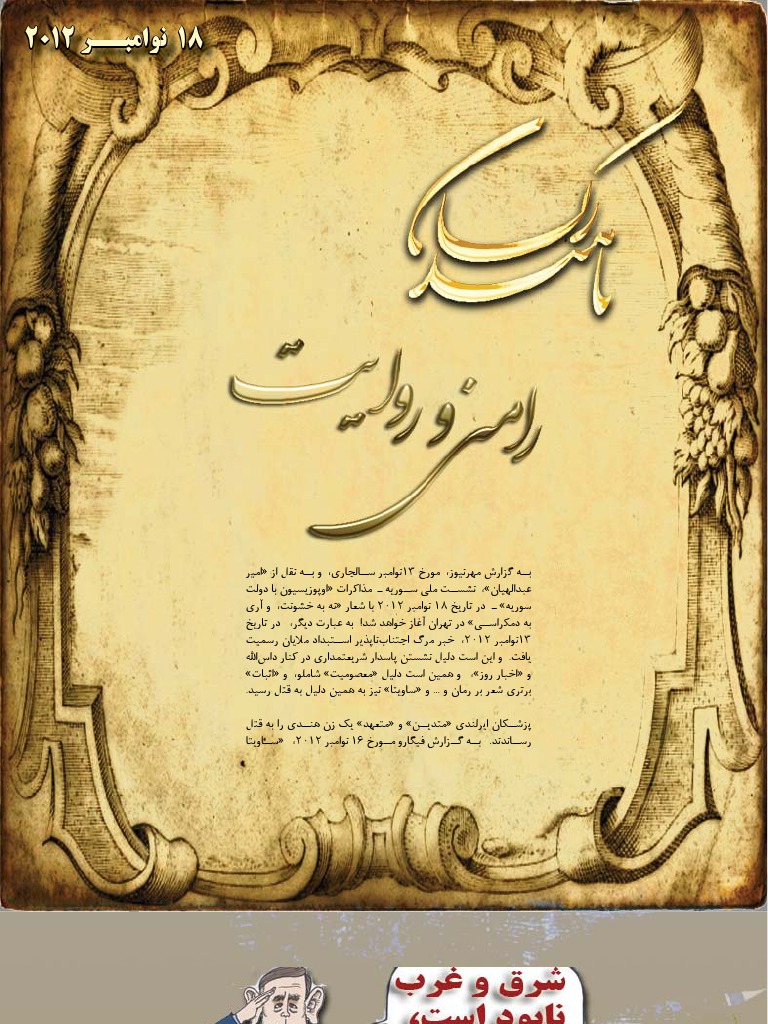 ۱۸ نوامبـــر ۲۰۱۲
رامزی و روایت
به گزارش مهرنیوز، مورخ ۱۳نوامبر سـالجاری، و به نقل از «امیر
عبدالهیان»، نشست ملی سوریه ـ مذاکرات «اوپوزیسیون با دولت
سوریه» ـ در تاریخ ۱۸ نوامبر ۲۰۱۲ با شعار «نه به خشونت، و آری
به دمکراسـی» در تهران آغاز خواهد شد! به عبارت دیگر، در تاریخ
۱۳نوامبر ۲۰۱۲، خبر مرگ اجتنابناپذیر استبداد ملایان رسمیت
یافت. و این است دلیل نشستن پاسدار شریعتمداری در کنار داسالله
و «اخبار روز»، و همین است دلیل «معصومیت» شاملو، و «اثبات»
برتری شعر بر رمان و ... و «ساویتا» نیز به همین دلیل به قتل رسید.
پزشـکان ایرلندی «متدیـن» و «متعهد» یک زن هنـدی را به قتل
رسـاندند. بـه گـزارش فیگارو مـورخ ۱۶ نوامبر ۲۰۱۲، «سـاویتا
شرق و غرب
نابود است،